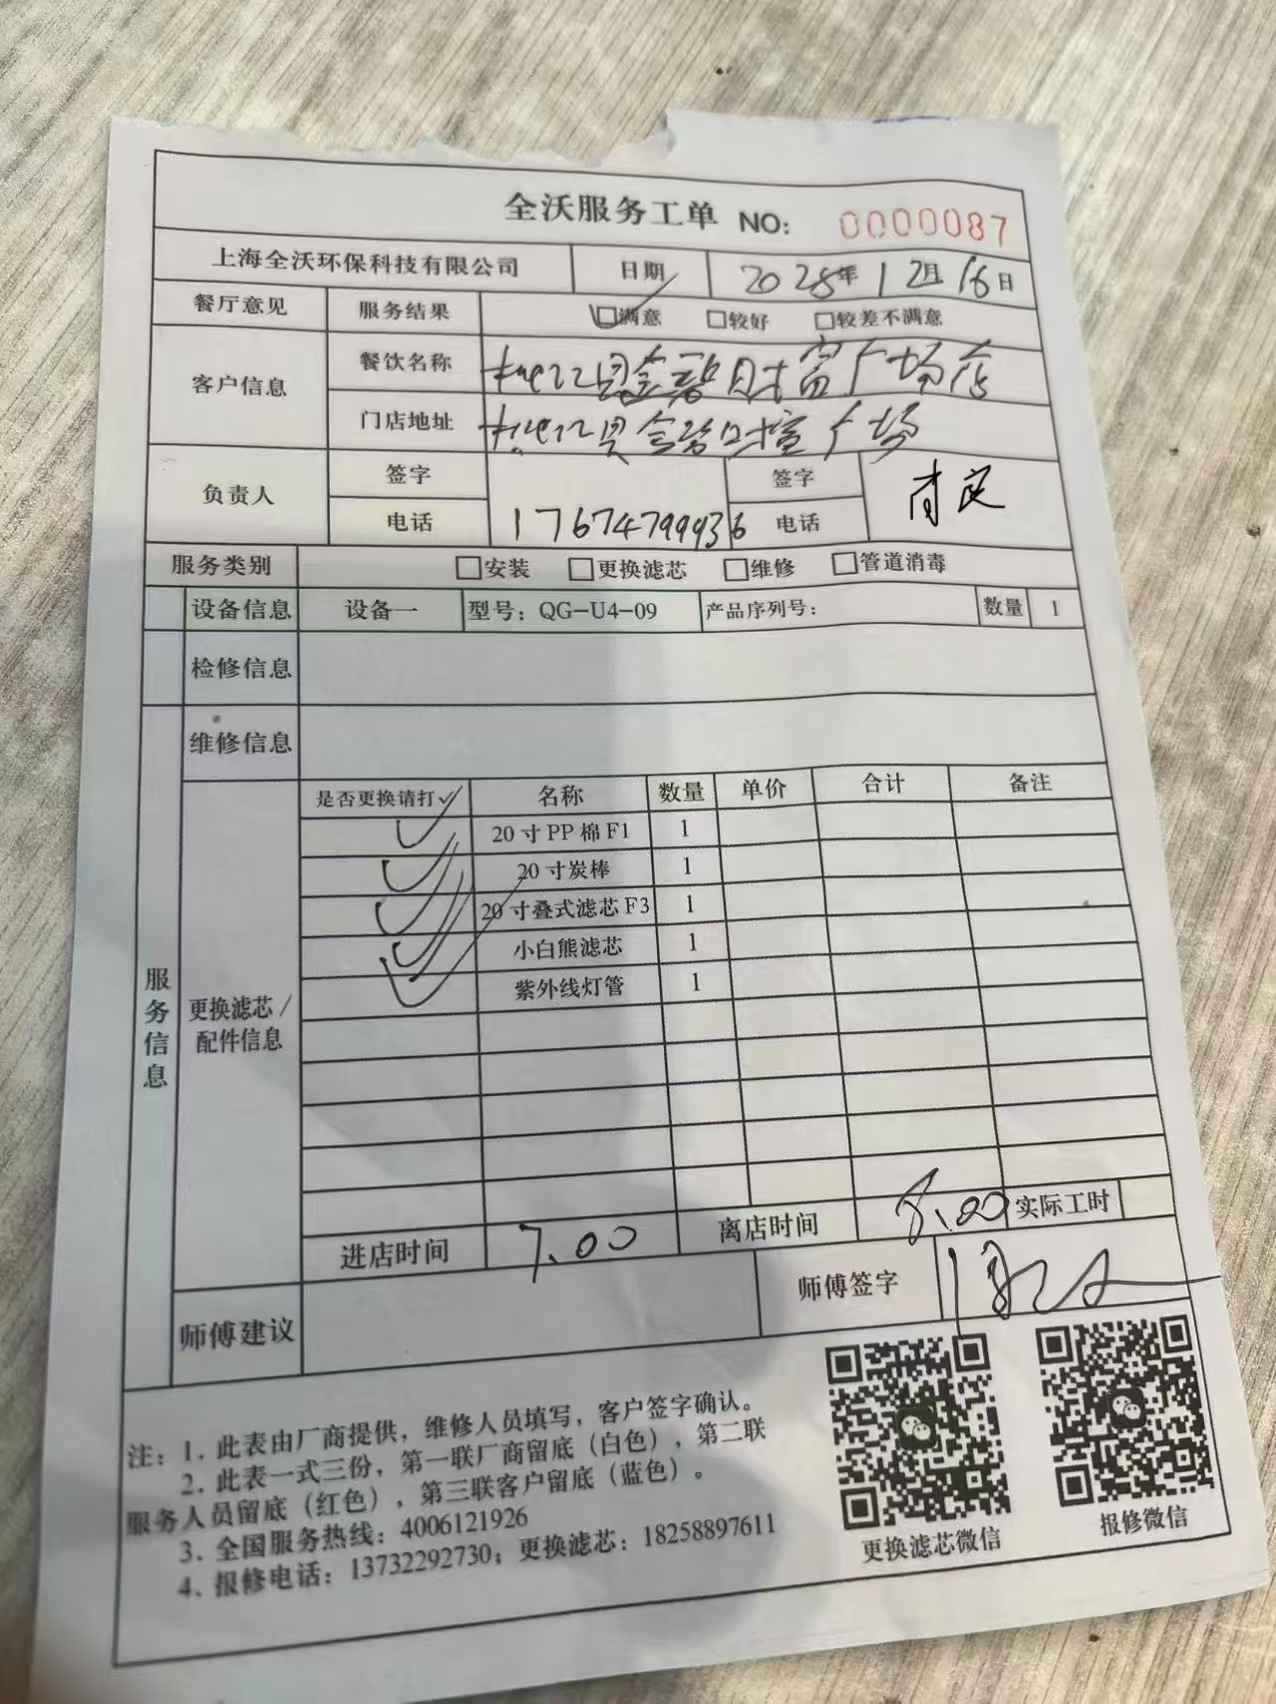 全沃服务工单 NO: 0000087
上海全沃环保科技有限公司 日期 2025年12月16日
餐厅意见 服务结果 满意 较好 较差不满意
客户信息 餐饮名称 财富广场店
门店地址 广场
负责人 签字 签字
电话 17674799936 电话
服务类别 安装 更换滤芯 维修 管道消毒
设备信息 设备一 型号：QG-U4-09 产品序列号： 数量 1
检修信息
维修信息
是否更换请打✓ 名称 数量 单价 合计 备注
✓ 20寸PP棉F1 1
✓ 20寸炭棒 1
✓ 20寸叠式滤芯F3 1
✓ 小白熊滤芯 1
✓ 紫外线灯管 1
服务信息
更换滤芯/
配件信息
进店时间 7.00 离店时间 8.00 实际工时
师傅建议 师傅签字
注：1. 此表由厂商提供，维修人员填写，客户签字确认。
2. 此表一式三份，第一联厂商留底（白色），第二联
服务人员留底（红色），第三联客户留底（蓝色）。
3. 全国服务热线：4006121926
4. 报修电话：13732292730；更换滤芯：18258897611
更换滤芯微信 报修微信